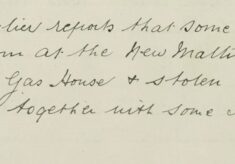 lier reports that some
om at the New Malti
Gas House & stolen
together with some c